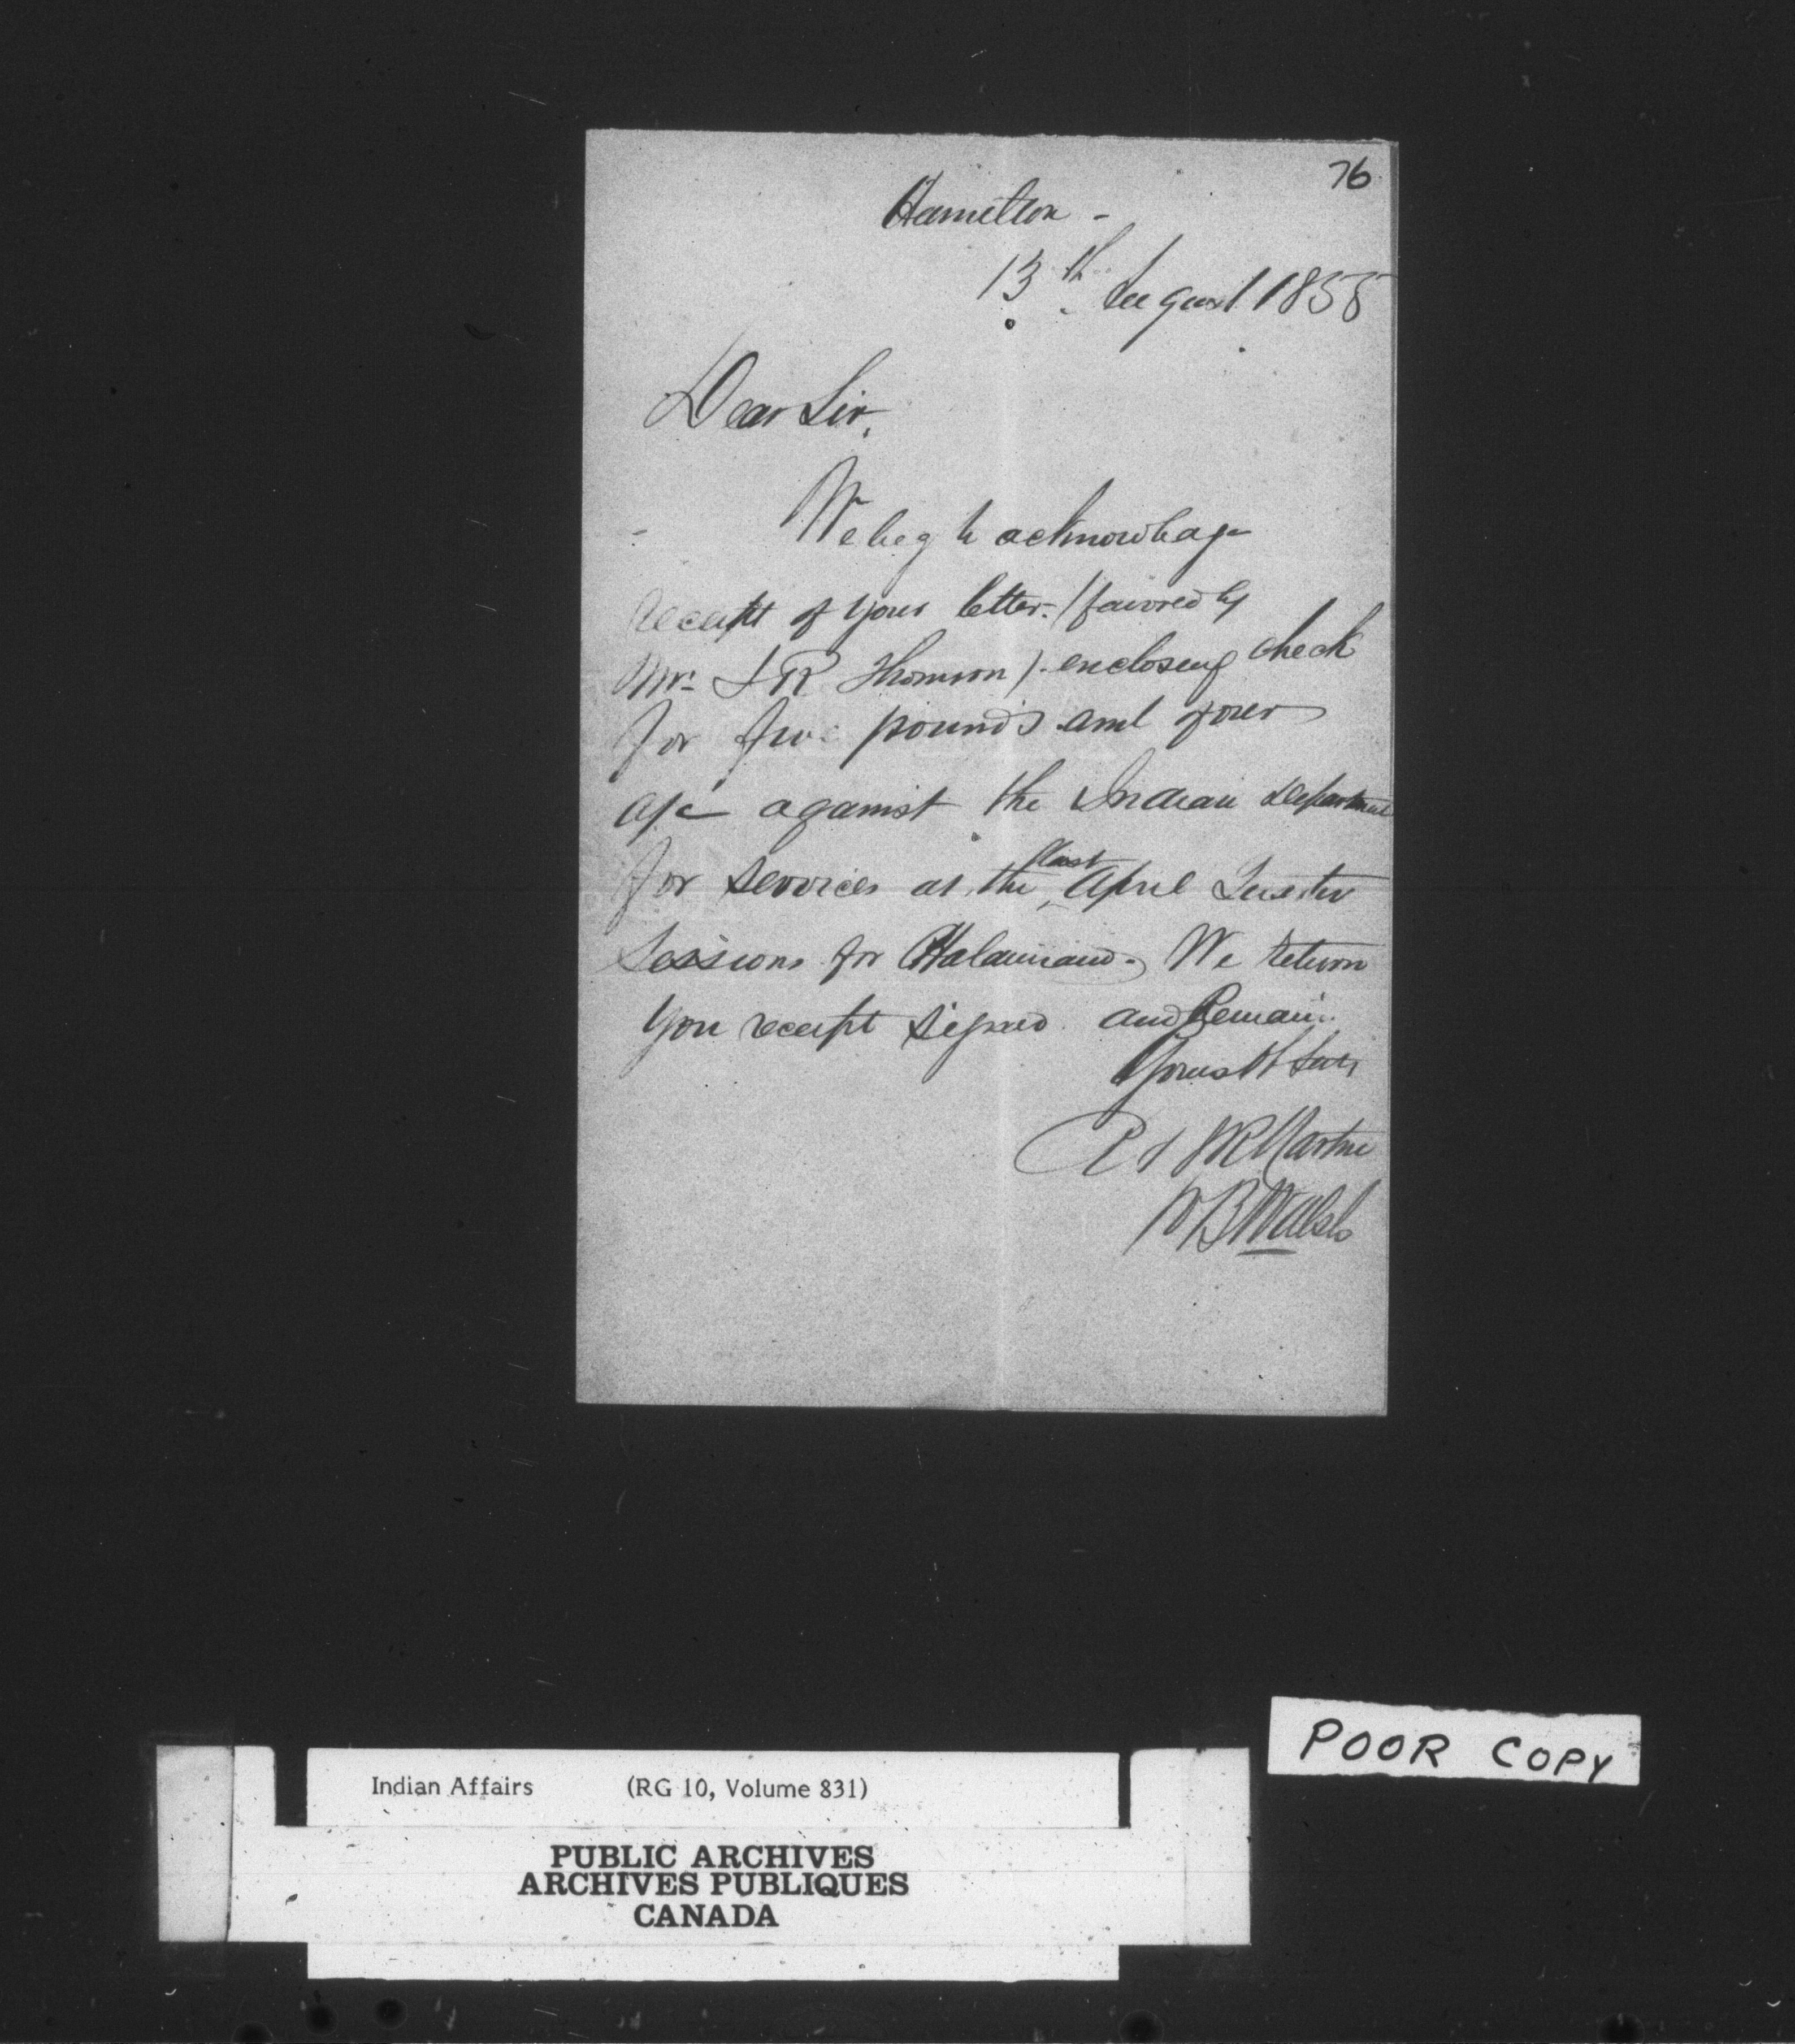 76
Hamilton -
13th August 1855
Dear Sir,
We beg to acknowledge
receipt of your letter - (favored by
Mr. J R Thomson) enclosing check
for five pounds and your
a/c against the Indian Department
for services at the last April Quarter
Sessions for Haldimand. We return
you receipt signed and Remain
Yours
R & J R Martin
W B Walsh
POOR COPY
Indian Affairs (RG 10, Volume 831)
PUBLIC ARCHIVES
ARCHIVES PUBLIQUES
CANADA